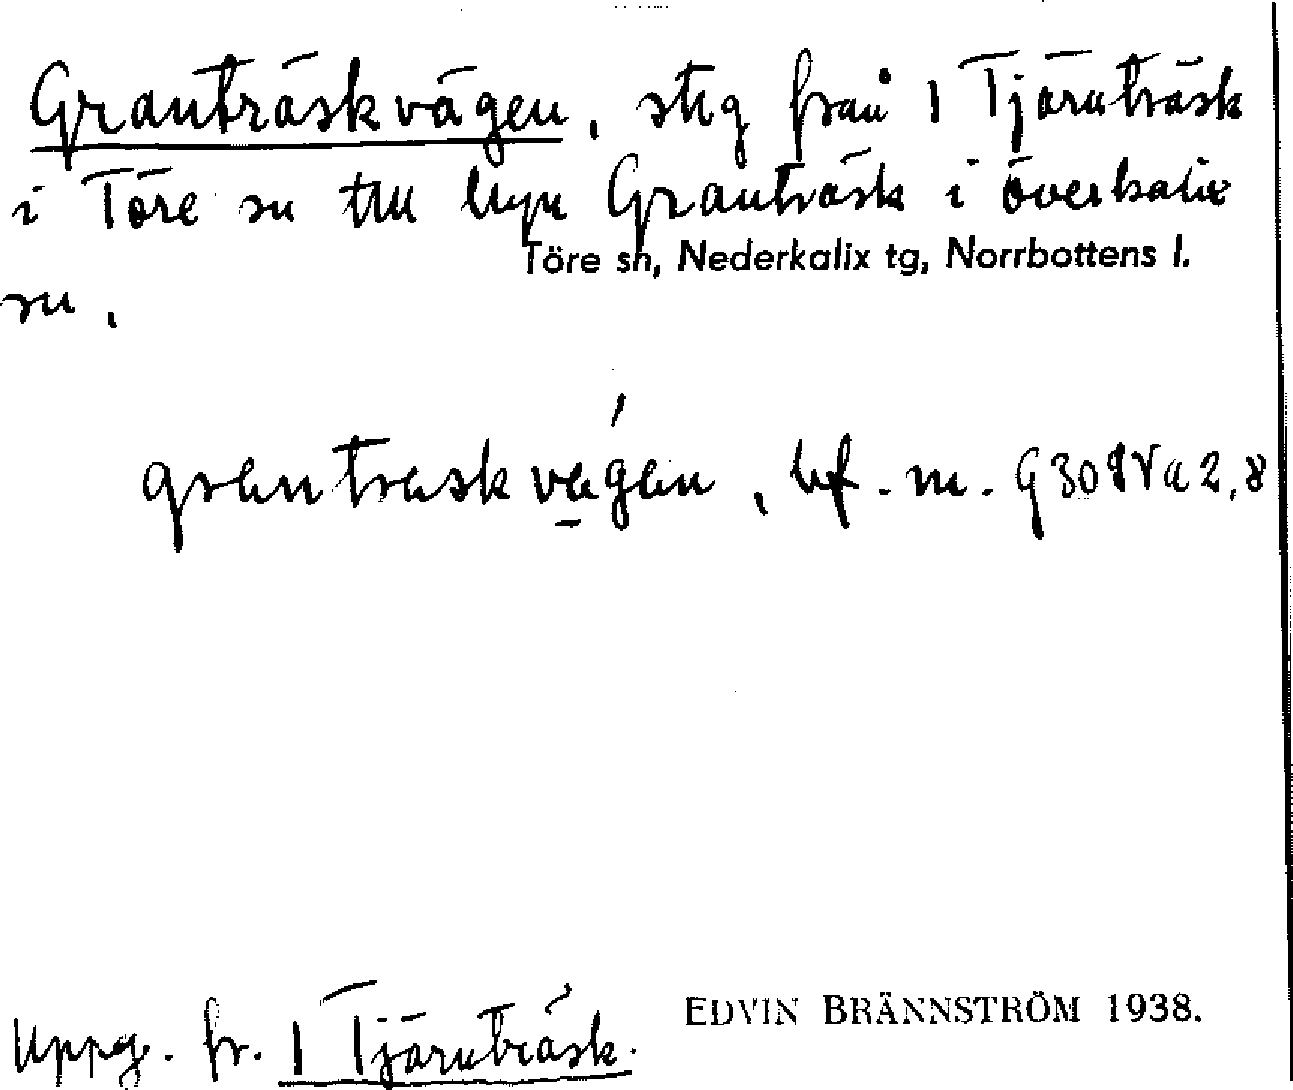 Granträskvägen, stig från 1 Tjärnträsk
i Töre sn till byn Granträsk i överkalix
Töre sn, Nederkalix tg, Norrbottens l.
sn.
grantraskvägen, bf. m.
Uppg. fr. 1 Tjärnträsk.
EDVIN BRÄNNSTRÖM 1938.